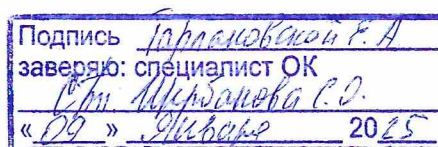 Подпись Тарлановской Е.А
заверяю: специалист ОК
Щербакова С.О.
«09» Января 2025